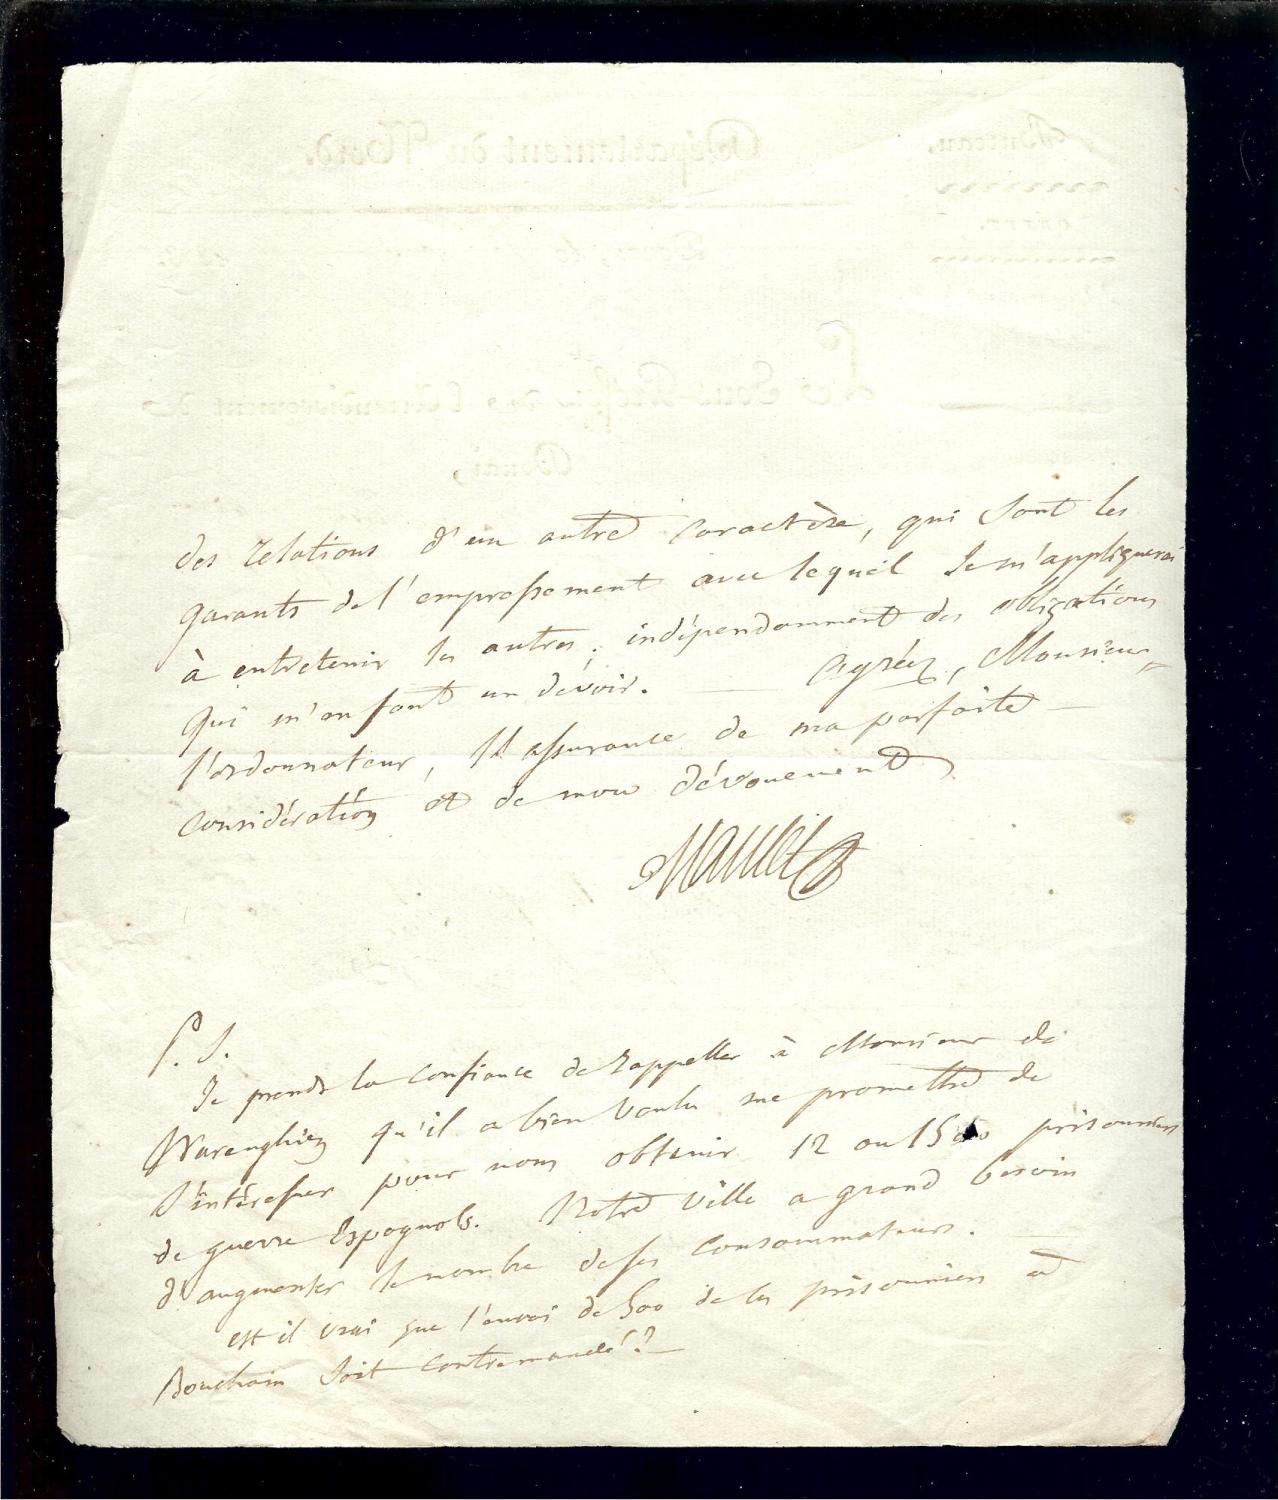 des relations d'un autre caractère, qui sont les
garants de l'empressement avec lequel Je m'appliquerai
à entretenir les autres, indépendamment des obligations
qui m'en font un devoir. Agréez, Monsieur
l'ordonnateur, l'assurance de ma parfaite
considération et de mon dévouement
P. S.
Je prends la confiance de rappeller à Monsieur de
Warenghien qu'il a bien voulu me promettre de
s'intéresser pour nous obtenir 12 ou 1500 prisonniers
de guerre Espagnols. Notre ville a grand besoin
d'augmenter le nombre de ses consommateurs.
est il vrai que l'envoi de 500 de ces prisonniers à
Bouchain soit contremandé?